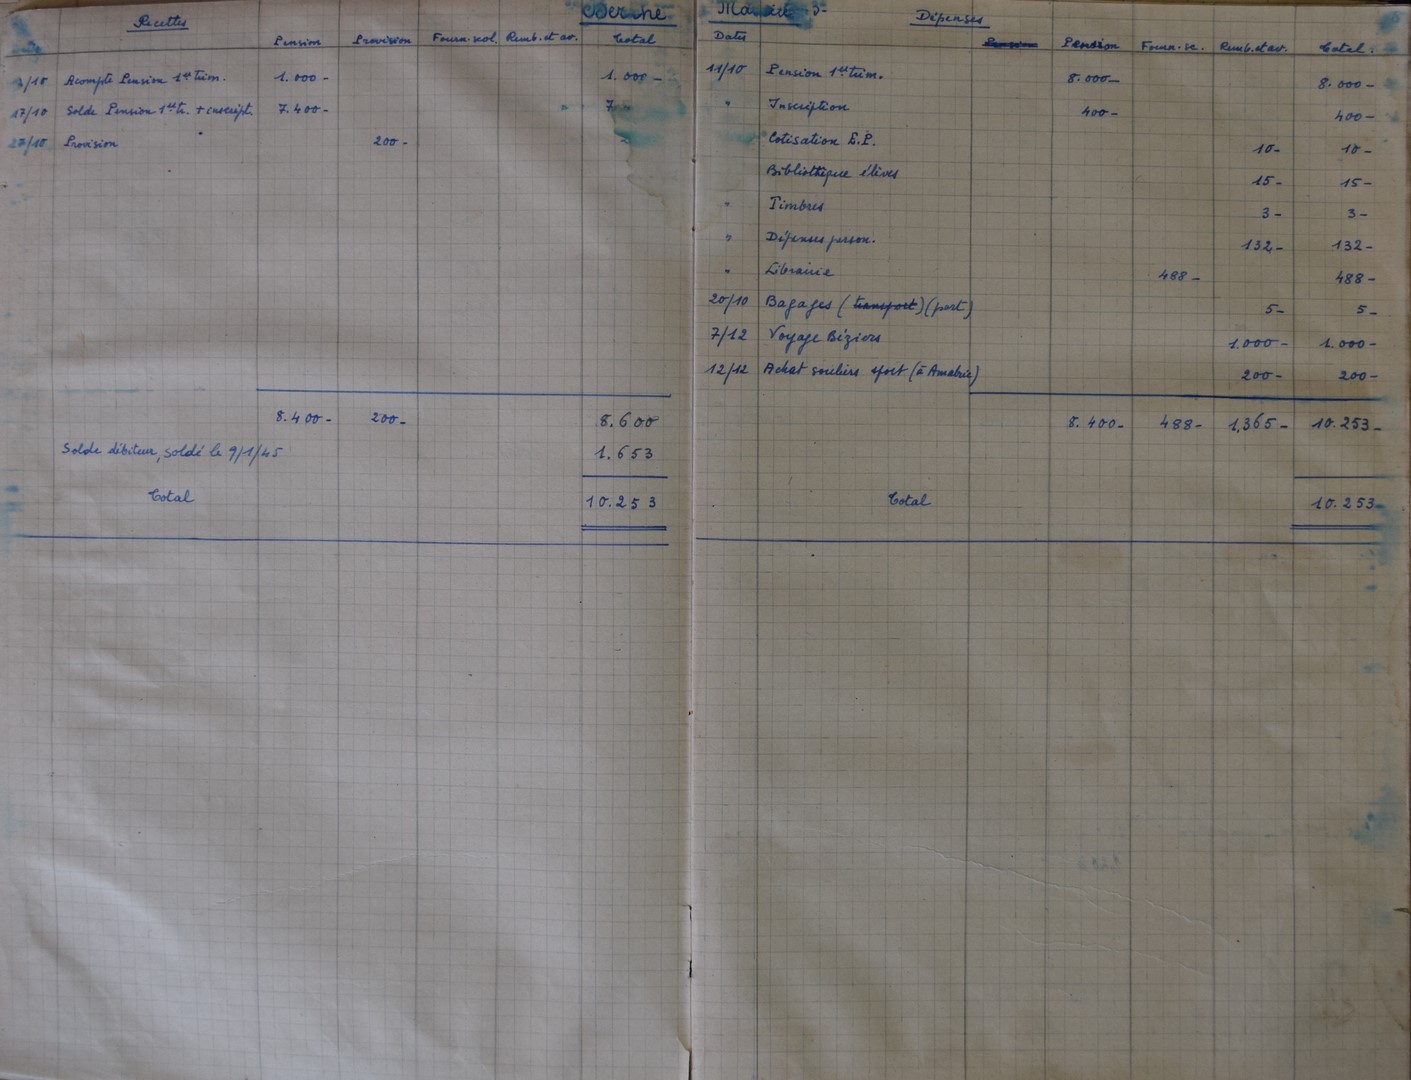 Recettes
Pension Provision Fourn. scol. Remb. et av. Total
Acompte Pension 1er trim. 1.000- 1.000-
17/10 Solde Pension 1er tr. + inscript. 7.400- " 7
Provision " 200-
8.400- 200- 8.600
Solde débiteur, soldé le 9/1/45 1.653
Total 10.253
Dépenses
Dates Pension Pension Fourn. sc. Remb. et av. Total :
11/10 Pension 1er trim. 8.000- 8.000-
" Inscription 400- 400-
Cotisation E.P. 10- 10-
Bibliothèque élèves 15- 15-
" Timbres 3- 3-
" Dépenses person. 132- 132-
" Librairie 488- 488-
20/10 Bagages (transport) (port) 5- 5-
7/12 Voyage Béziers 1.000- 1.000-
12/12 Achat souliers sport (à Amabric) 200- 200-
8.400- 488- 1,365- 10.253-
Total 10.253-